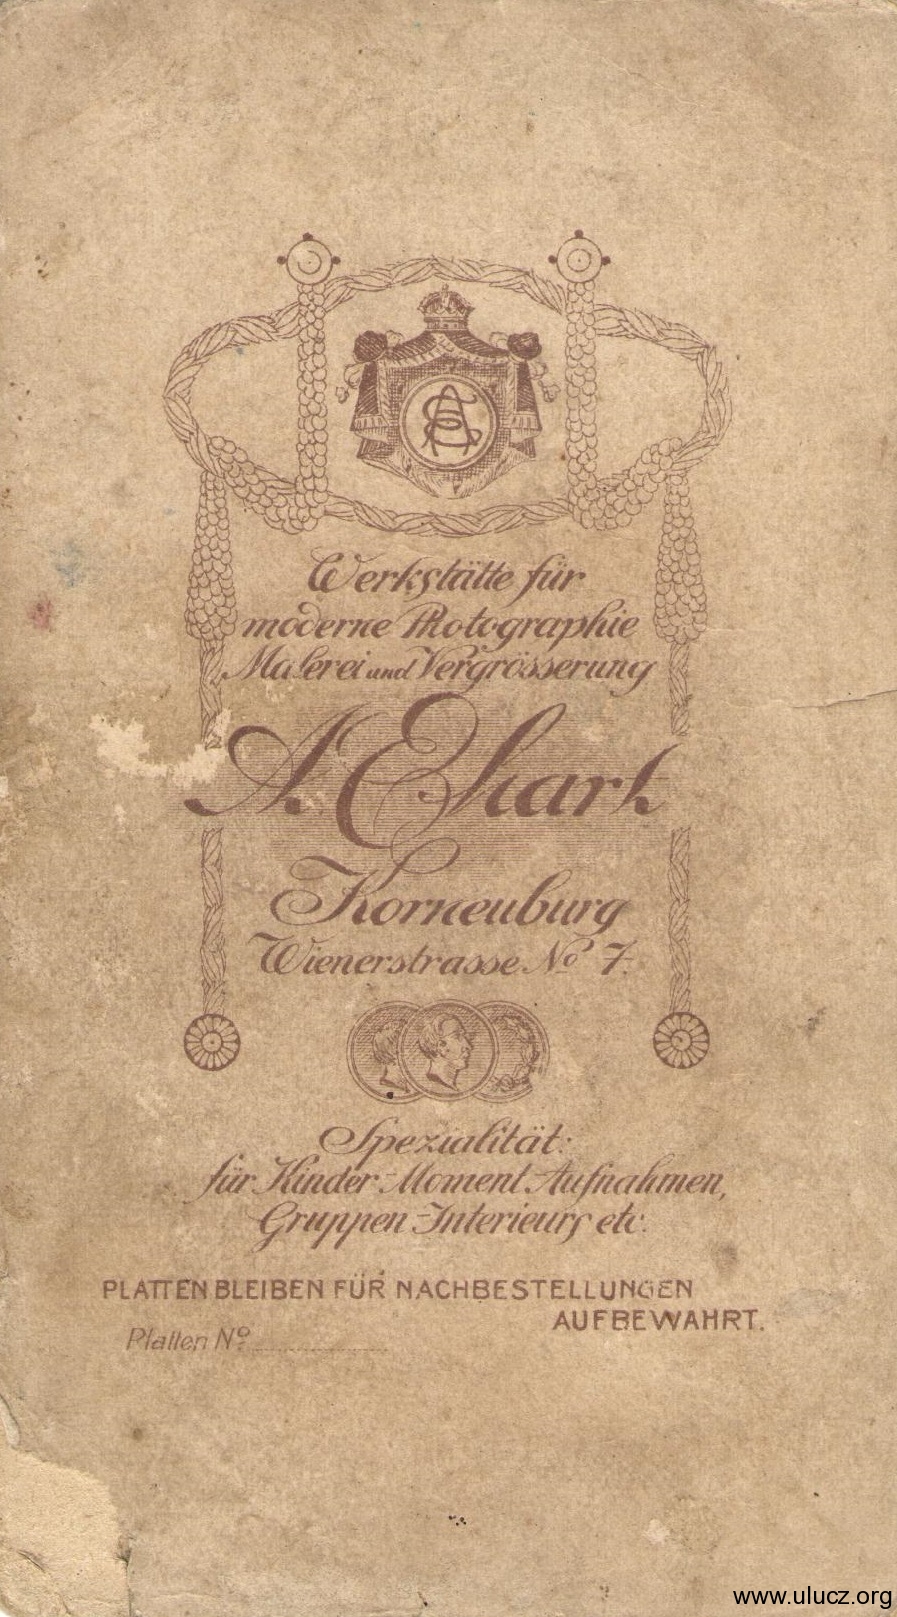 Werkstätte für
moderne Photographie
Malerei und Vergrösserung
A. Stark
Korneuburg
Wienerstrasse No 7.
Spezialität:
für Kinder-Moment Aufnahmen,
Gruppen-Interieurs etc.
PLATTEN BLEIBEN FÜR NACHBESTELLUNGEN
AUFBEWAHRT.
Platten No
www.ulucz.org